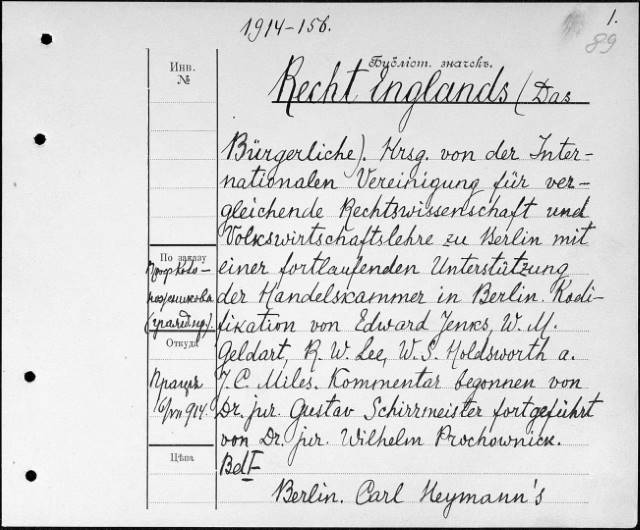 1914-156.
1.
89
Инв.
№
Бубліот. значекъ.
Recht Englands (Das
Bürgerliche). Hrsg. von der Inter-
nationalen Vereinigung für ver-
gleichende Rechtswissenschaft und
Volkswirtschaftslehre zu Berlin mit
По заказу
einer fortlaufenden Unterstützung
der Handelskammer in Berlin. Kodi-
fikation von Edward Jenks, W. M.
Откуда
Geldart, R. W. Lee, W. S. Holdsworth a.
J. C. Miles. Kommentar begonnen von
Dr. jur. Gustav Schirrmeister fortgeführt
von Dr. jur. Wilhelm Prochownick.
Цѣна
Bd I
Berlin. Carl Heymann's